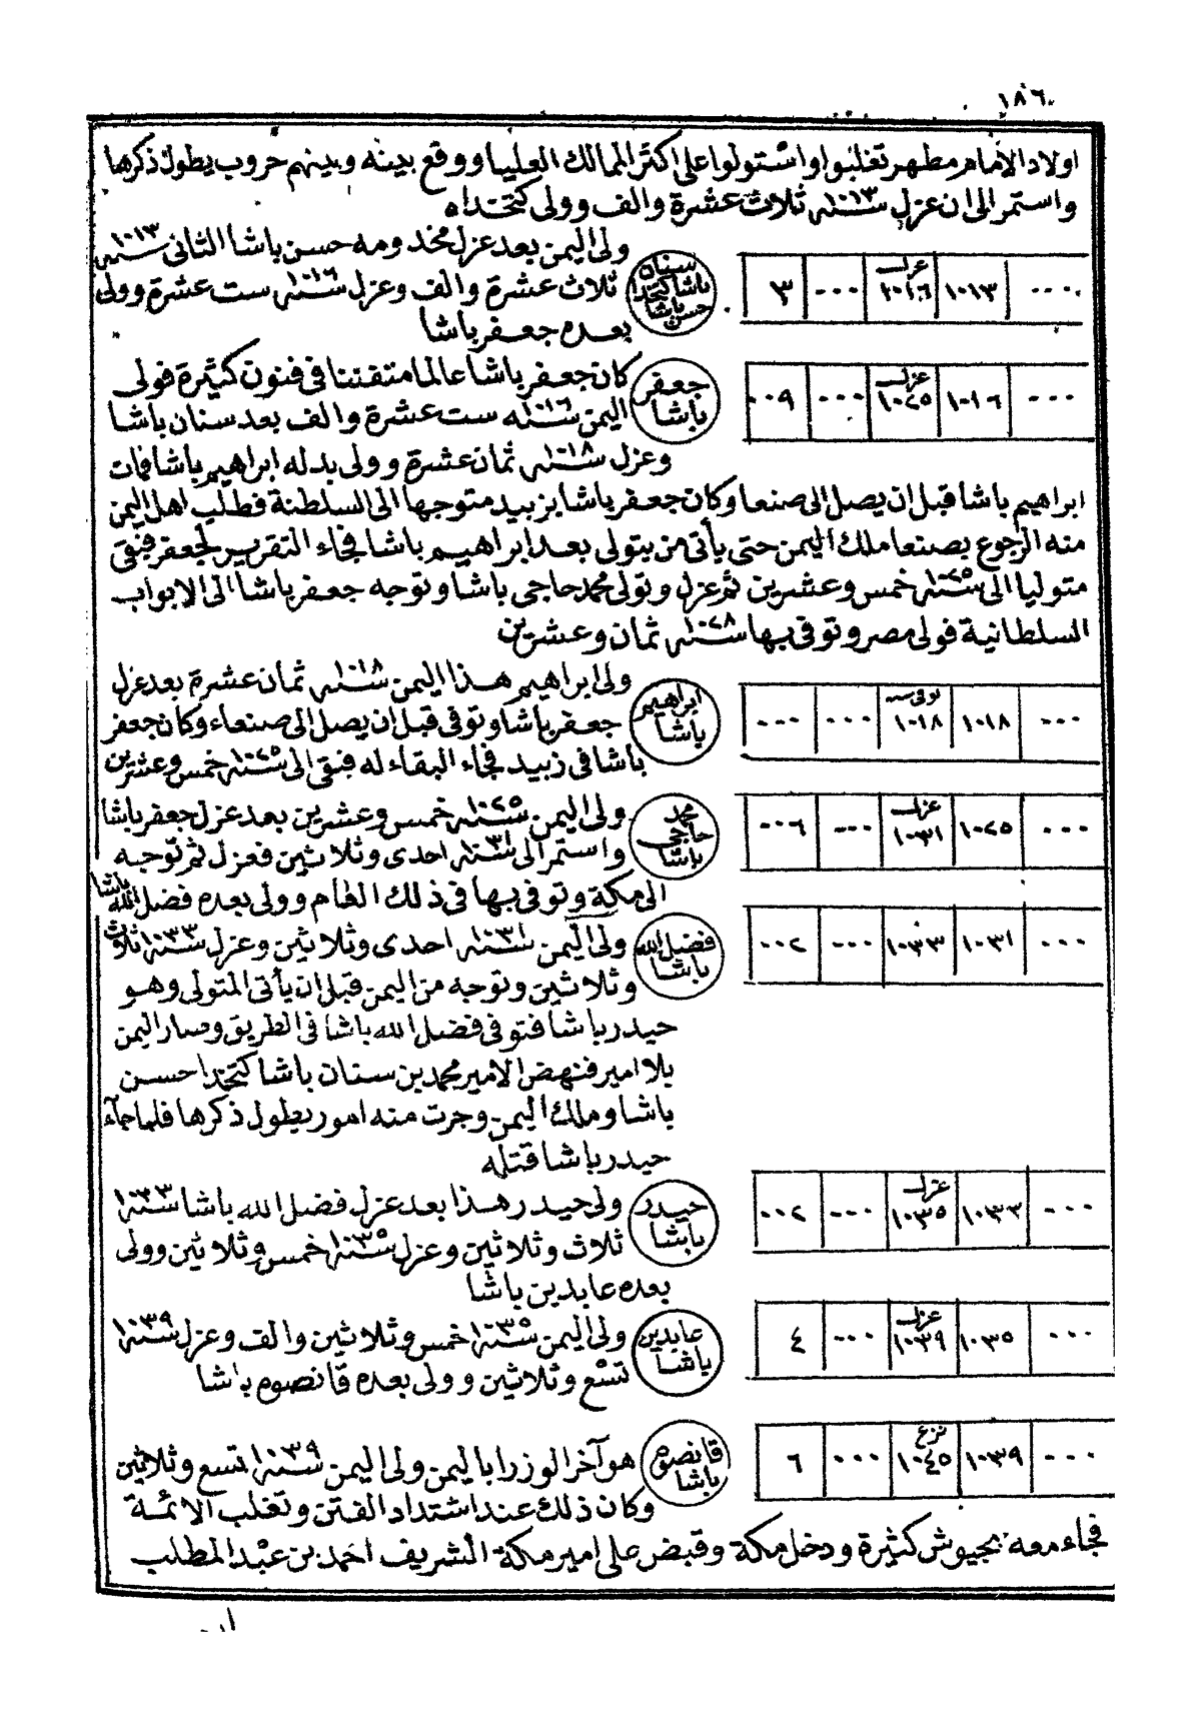 ١٨٦
اولاد الامام مطهر تغلبوا واستولوا على اكثر الممالك العليا ووقع بينه وبينهم حروب يطول ذكرها
واستمر الى ان عزل سنة ١٠١٣ ثلاث عشرة والف وولى كتخداه
... ١٠١٣ عزل ١٠١٦ ... ٣
سنان باشا كتخدا حسن باشا
ولى اليمن بعد عزل مخدومه حسن باشا الثانى سنة ١٠١٣
ثلاث عشرة والف وعزل سنة ١٠١٦ ست عشرة وولى
بعده جعفر باشا
... ١٠١٦ عزل ١٠٢٥ ... ٠٠٩
جعفر باشا
كان جعفر باشا عالما متفننا فى فنون كثيرة فولى
اليمن سنة ١٠١٦ ست عشرة والف بعد سنان باشا
وعزل سنة ١٠١٨ ثمان عشرة وولى بدله ابراهيم باشا فمات
ابراهيم باشا قبل ان يصل الى صنعا وكان جعفر باشا بزبيد متوجها الى السلطنة فطلب اهل اليمن
منه الرجوع بصنعا ملك اليمن حتى يأتى من يتولى بعد ابراهيم باشا فجاء التقرير لجعفر فبقى
متوليا الى سنة ١٠٢٥ خمس وعشرين ثم عزل وتولى محمد حاجى باشا وتوجه جعفر باشا الى الابواب
السلطانية فولى مصر وتوفى بها سنة ١٠٢٨ ثمان وعشرين
... ١٠١٨ توفى سنة ١٠١٨ ... ...
ابراهيم باشا
ولى ابراهيم هذا اليمن سنة ١٠١٨ ثمان عشرة بعد عزل
جعفر باشا وتوفى قبل ان يصل الى صنعاء وكان جعفر
باشا فى زبيد فجاء البقاء له فبقى الى سنة ١٠٢٥ خمس وعشرين
... ١٠٢٥ عزل ١٠٣١ ... ٠٠٦
محمد حاجى باشا
ولى اليمن سنة ١٠٢٥ خمس وعشرين بعد عزل جعفر باشا
واستمر الى سنة ١٠٣١ احدى وثلاثين فعزل ثم توجه
الى مكة وتوفى بها فى ذلك العام وولى بعده فضل الله باشا
... ١٠٣١ ١٠٣٣ ... ٠٠٢
فضل الله باشا
ولى اليمن سنة ١٠٣١ احدى وثلاثين وعزل سنة ١٠٣٣ ثلاث
وثلاثين وتوجه من اليمن قبل ان يأتى المتولى وهو
حيدر باشا فتوفى فضل الله باشا فى الطريق وصار اليمن
بلا امير فنهض الامير محمد بن سنان باشا كتخدا حسن
باشا وملك اليمن وجرت منه امور يطول ذكرها فلما جاء
حيدر باشا قتله
... ١٠٣٣ عزل ١٠٣٥ ... ٠٠٢
حيدر باشا
ولى حيدر هذا بعد عزل فضل الله باشا سنة ١٠٣٣
ثلاث وثلاثين وعزل سنة ١٠٣٥ خمس وثلاثين وولى
بعده عابدين باشا
... ١٠٣٥ عزل ١٠٣٩ ... ٤
عابدين باشا
ولى اليمن سنة ١٠٣٥ خمس وثلاثين والف وعزل سنة ١٠٣٩
تسع وثلاثين وولى بعده قانصوه باشا
... ١٠٣٩ نزع ١٠٤٥ ... ٦
قانصوه باشا
هو آخر الوزرا باليمن ولى اليمن سنة ١٠٣٩ تسع وثلاثين
وكان ذلك عند اشتداد الفتن وتغلب الائمة
فجاء معه بجيوش كثيرة ودخل مكة وقبض على امير مكة الشريف احمد بن عبد المطلب